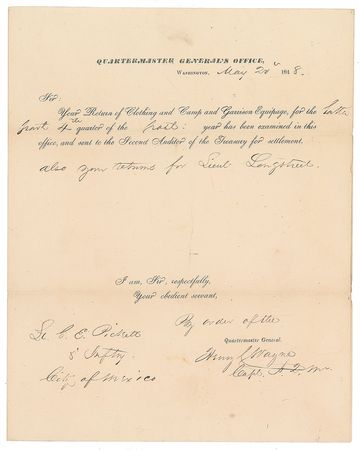 QUARTERMASTER GENERAL'S OFFICE,
WASHINGTON, May 20 1848.
Sir:
Your Return of Clothing and Camp and Garrison Equipage, for the latter
part 4th quarter of the past year has been examined in this
office, and sent to the Second Auditor of the Treasury for settlement.
also your returns for Lieut Longstreet.
I am, Sir, respectfully,
Your obedient servant,
By order of the
Quartermaster General.
Lt. G. E. Pickett
8 Infty
City of Mexico
Henry C Wayne
Capt. A. Q. M.